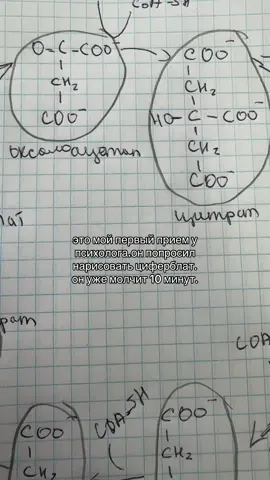 CoA-SH
O-C-COO⁻
CH₂
COO⁻
оксалоацетат
COO⁻
CH₂
HO-C-COO⁻
CH₂
COO⁻
цитрат
лат
это мой первый прием у
психолога.он попросил
нарисовать циферблат.
он уже молчит 10 минут.
рат
COA
COO⁻
CH₂
COA-SH
COO⁻
CH₂